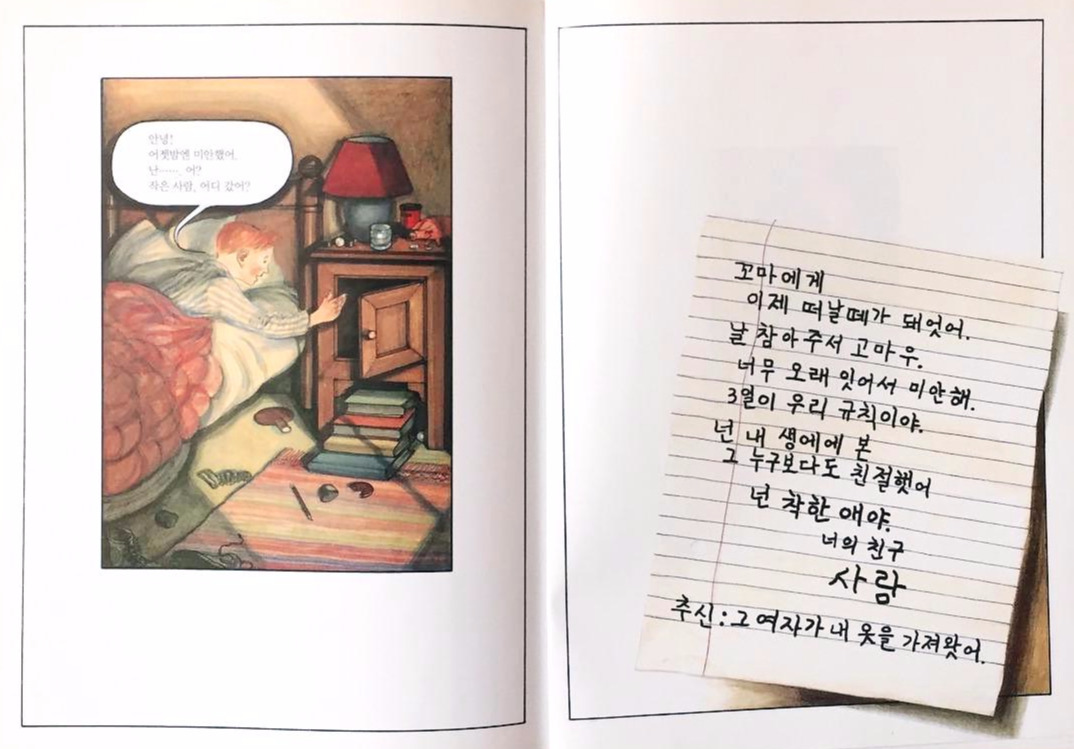 안녕!
어젯밤엔 미안했어.
난……. 어?
작은 사람, 어디 갔어?
꼬마에게
이제 떠날떼가 돼엇어.
날 참아주서 고마우.
너무 오래 잇어서 미안해.
3일이 우리 규칙이야.
넌 내 생에에 본
그 누구보다도 친절했어
넌 착한 애야.
너의 친구
사람
추신: 그 여자가 내 옷을 가져왓어.